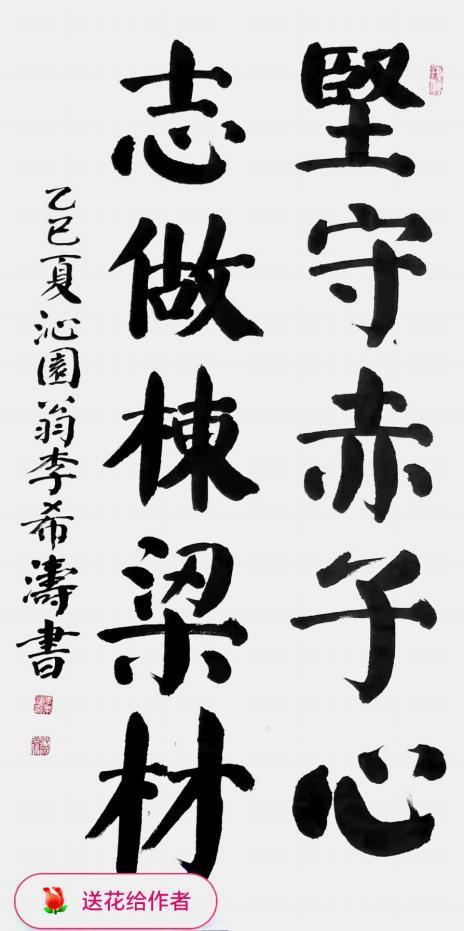 堅守赤子心
志做棟梁材
乙巳夏沁園翁李希濤書
送花给作者